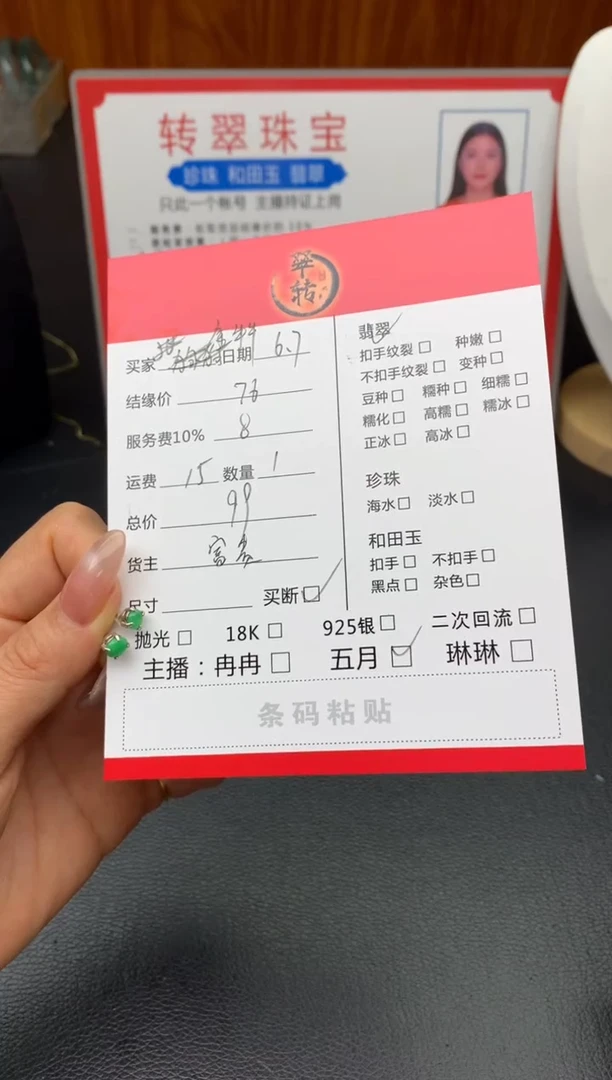 转翠珠宝
珍珠 和田玉 翡翠
只此一个帐号 主播持证上岗
翠
转
买家 日期 6.7
结缘价 76
服务费10% 8
运费 15 数量 1
总价 99
货主 富
尺寸 买断☑
翡翠
扣手纹裂□ 种嫩□
不扣手纹裂□ 变种□
豆种□ 糯种□ 细糯□
糯化□ 高糯□ 糯冰□
正冰□ 高冰□
珍珠
海水□ 淡水□
和田玉
扣手□ 不扣手□
黑点□ 杂色□
抛光□ 18K□ 925银□ 二次回流□
主播：冉冉□ 五月☑ 琳琳□
条码粘贴